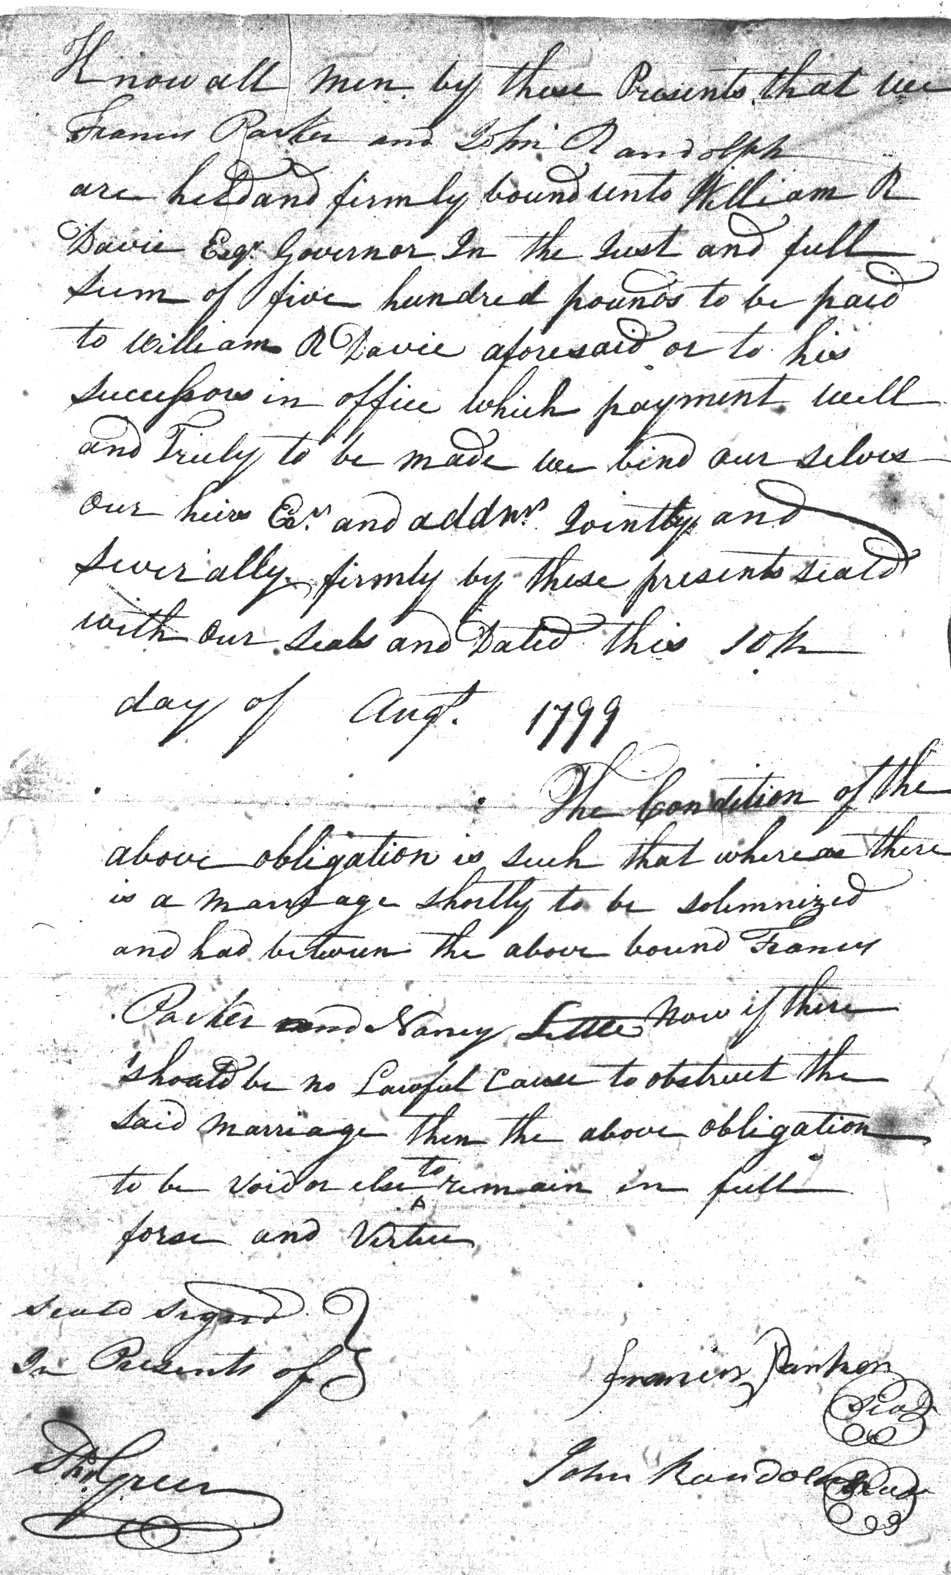 Know all men by these Presents that we
Francis Parker and John Randolph
are held and firmly bound unto William R
Davie Esqr. Governor In the Just and full
Sum of five hundred pounds to be paid
to William R Davie aforesaid or to his
successors in office which payment well
and Truly to be made we bind our selves
our heirs Exrs and addnrs Jointly and
Severally firmly by these presents seald
with our seals and Dated this 10th
day of Augt. 1799
The Condition of the
above obligation is such that whereas there
is a marriage shortly to be solemnized
and had between the above bound Francis
Parker and Nancy Little Now if there
should be no Lawful Cause to obstruct the
said marriage then the above obligation
to be void or else to remain in full
forse and Virtue
seald signed
In Presents of
Francis Parker
Seal
Thos Green
John Randolph Seal